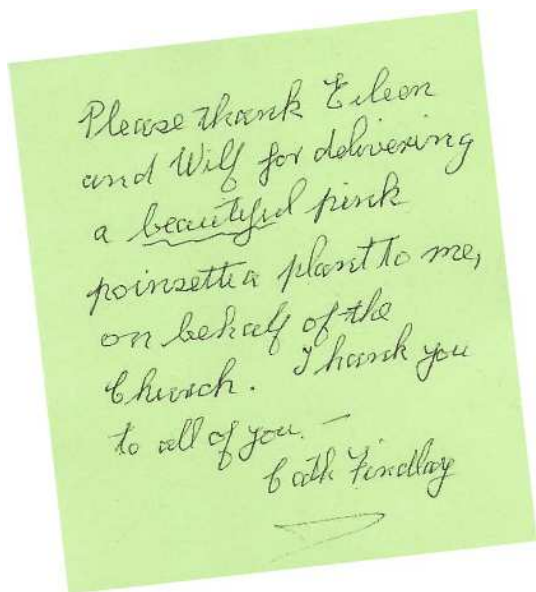 Please thank Eileen
and Wilf for delivering
a beautiful pink
poinsettia plant to me,
on behalf of the
Church. Thank you
to all of you. —
Cath Findlay